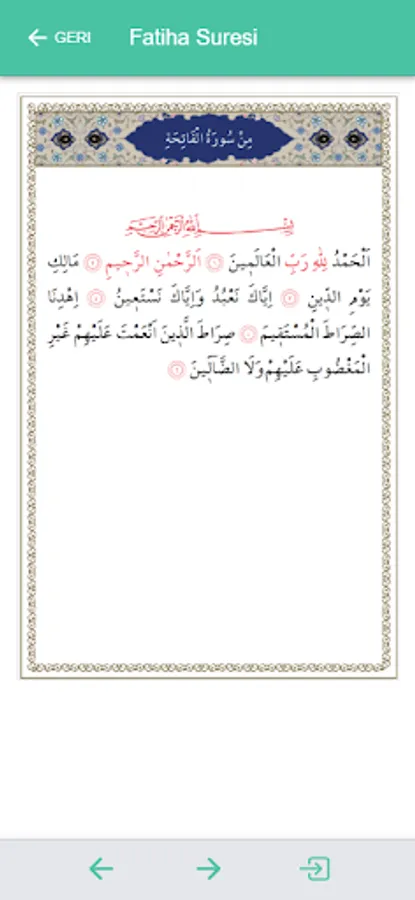 GERİ
Fatiha Suresi
مِنْ سُورَةُ الْفَاتِحَةِ
بِسْمِ اللّٰهِ الرَّحْمٰنِ الرَّحِيمِ
اَلْحَمْدُ لِلّٰهِ رَبِّ الْعَالَمِينَ ۝ اَلرَّحْمٰنِ الرَّحِيمِ ۝ مَالِكِ
يَوْمِ الدِّينِ ۝ اِيَّاكَ نَعْبُدُ وَاِيَّاكَ نَسْتَعِينُ ۝ اِهْدِنَا
الصِّرَاطَ الْمُسْتَقِيمَ ۝ صِرَاطَ الَّذِينَ اَنْعَمْتَ عَلَيْهِمْ غَيْرِ
الْمَغْضُوبِ عَلَيْهِمْ وَلَا الضَّٓالِّينَ ۝